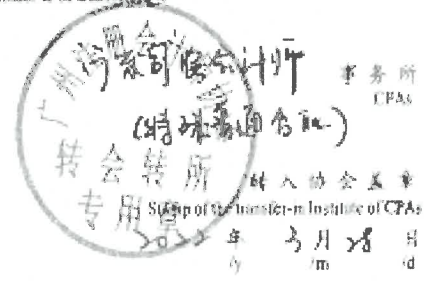 广东司农会计师 事务所
CPAs
(特殊普通合伙)
广州注册会计师协会
转会转所
专用章
转入协会盖章
Stamp of the transfer-in Institute of CPAs
2022 年 3 月 28 日
/y /m /d